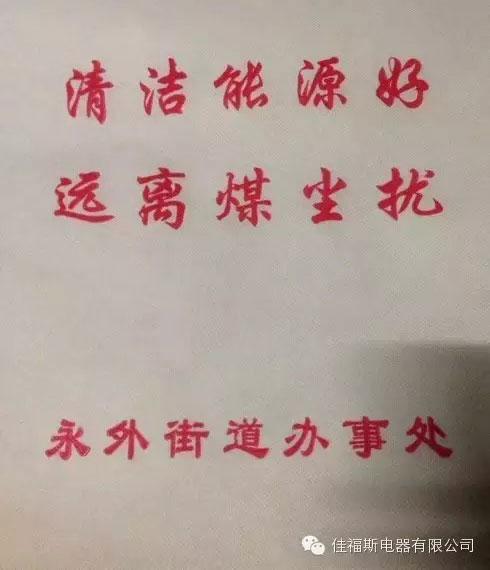 清洁能源好
远离煤尘扰
永外街道办事处
佳福斯电器有限公司